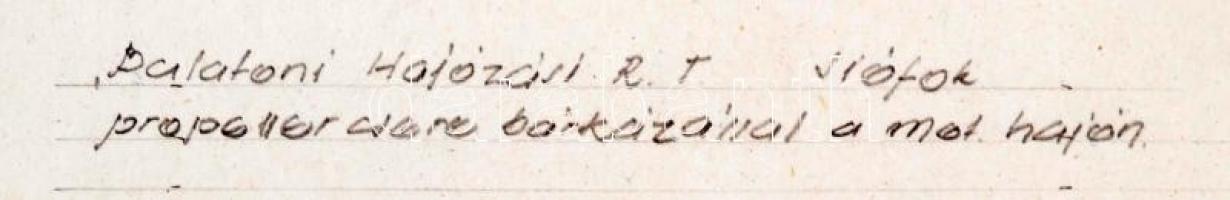 Balatoni Hajózási R.T Siófok
propeller csere bárkázással a mot. hajón.